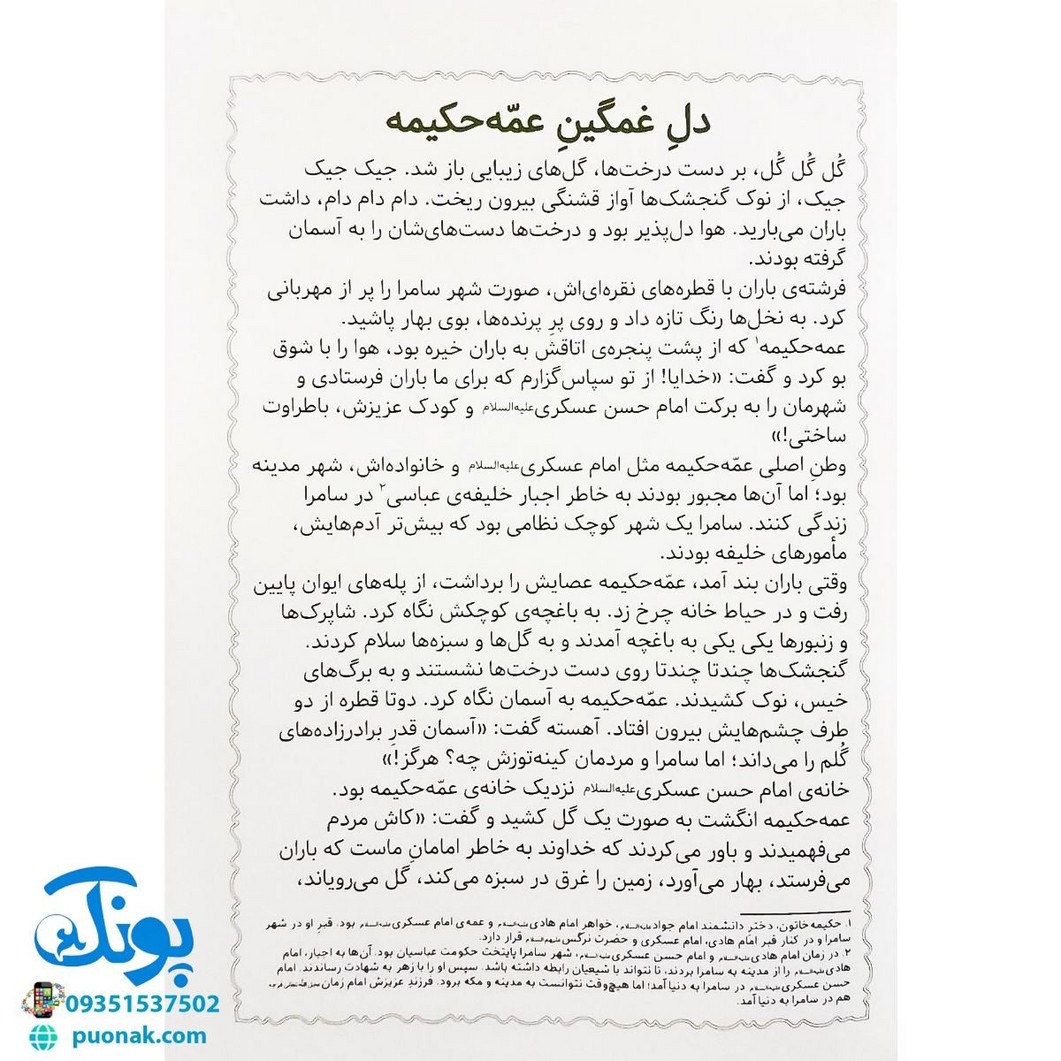 دلِ غمگینِ عمّه‌حکیمه
گُل گُل گُل، بر دست درخت‌ها، گل‌های زیبایی باز شد. جیک جیک
جیک، از نوک گنجشک‌ها آواز قشنگی بیرون ریخت. دام دام دام، داشت
باران می‌بارید. هوا دل‌پذیر بود و درخت‌ها دست‌های‌شان را به آسمان
گرفته بودند.
فرشته‌ی باران با قطره‌های نقره‌ای‌اش، صورت شهر سامرا را پر از مهربانی
کرد. به نخل‌ها رنگ تازه داد و روی پرِ پرنده‌ها، بوی بهار پاشید.
عمه‌حکیمه۱ که از پشت پنجره‌ی اتاقش به باران خیره بود، هوا را با شوق
بو کرد و گفت: «خدایا! از تو سپاس‌گزارم که برای ما باران فرستادی و
شهرمان را به برکت امام حسن عسکری علیه‌السلام و کودک عزیزش، باطراوت
ساختی!»
وطنِ اصلی عمّه‌حکیمه مثل امام عسکری علیه‌السلام و خانواده‌اش، شهر مدینه
بود؛ اما آن‌ها مجبور بودند به خاطر اجبار خلیفه‌ی عباسی۲ در سامرا
زندگی کنند. سامرا یک شهر کوچک نظامی بود که بیش‌تر آدم‌هایش،
مأمورهای خلیفه بودند.
وقتی باران بند آمد، عمّه‌حکیمه عصایش را برداشت، از پله‌های ایوان پایین
رفت و در حیاط خانه چرخ زد. به باغچه‌ی کوچکش نگاه کرد. شاپرک‌ها
و زنبورها یکی یکی به باغچه آمدند و به گل‌ها و سبزه‌ها سلام کردند.
گنجشک‌ها چندتا چندتا روی دست درخت‌ها نشستند و به برگ‌های
خیس، نوک کشیدند. عمّه‌حکیمه به آسمان نگاه کرد. دوتا قطره از دو
طرف چشم‌هایش بیرون افتاد. آهسته گفت: «آسمان قدرِ برادرزاده‌های
گُلم را می‌داند؛ اما سامرا و مردمان کینه‌توزش چه؟ هرگز!»
خانه‌ی امام حسن عسکری علیه‌السلام نزدیک خانه‌ی عمّه‌حکیمه بود.
عمه‌حکیمه انگشت به صورت یک گل کشید و گفت: «کاش مردم
می‌فهمیدند و باور می‌کردند که خداوند به خاطر امامانِ ماست که باران
می‌فرستد، بهار می‌آورد، زمین را غرق در سبزه می‌کند، گل می‌رویاند،
۱. حکیمه خاتون، دختر دانشمند امام جواد علیه‌السلام، خواهر امام هادی علیه‌السلام و عمه‌ی امام عسکری علیه‌السلام بود. قبر او در شهر
سامرا و در کنار قبر امام هادی، امام عسکری و حضرت نرگس علیهم‌السلام قرار دارد.
۲. در زمان امام هادی علیه‌السلام و امام حسن عسکری علیه‌السلام، شهر سامرا پایتخت حکومت عباسیان بود. آن‌ها به اجبار، امام
هادی علیه‌السلام را از مدینه به سامرا بردند، تا نتواند با شیعیان رابطه داشته باشد. سپس او را با زهر به شهادت رساندند. امام
حسن عسکری علیه‌السلام در سامرا به دنیا آمد؛ اما هیچ‌وقت نتوانست به مدینه و مکه برود. فرزند عزیزش امام زمان
هم در سامرا به دنیا آمد.
پونک
09351537502
puonak.com